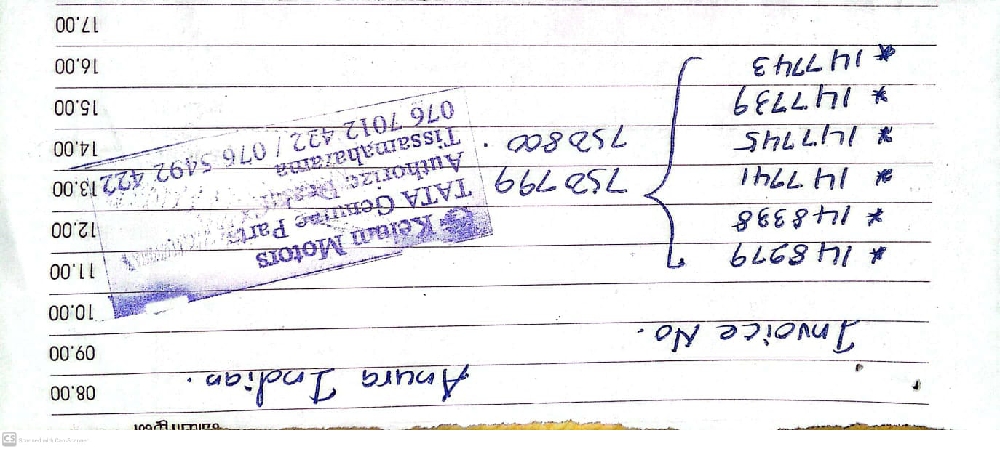 08.00 Anura Indian.
09.00 Invoice No.
10.00
11.00 * 148979
12.00 * 148338
13.00 * 147941 750799
14.00 * 147745 750800.
15.00 * 147739
16.00 * 147743
17.00
Motors
TATA Genuine Parts
Authorize Dealer
Tissamaharama
076 7012 422 / 076 5492 422